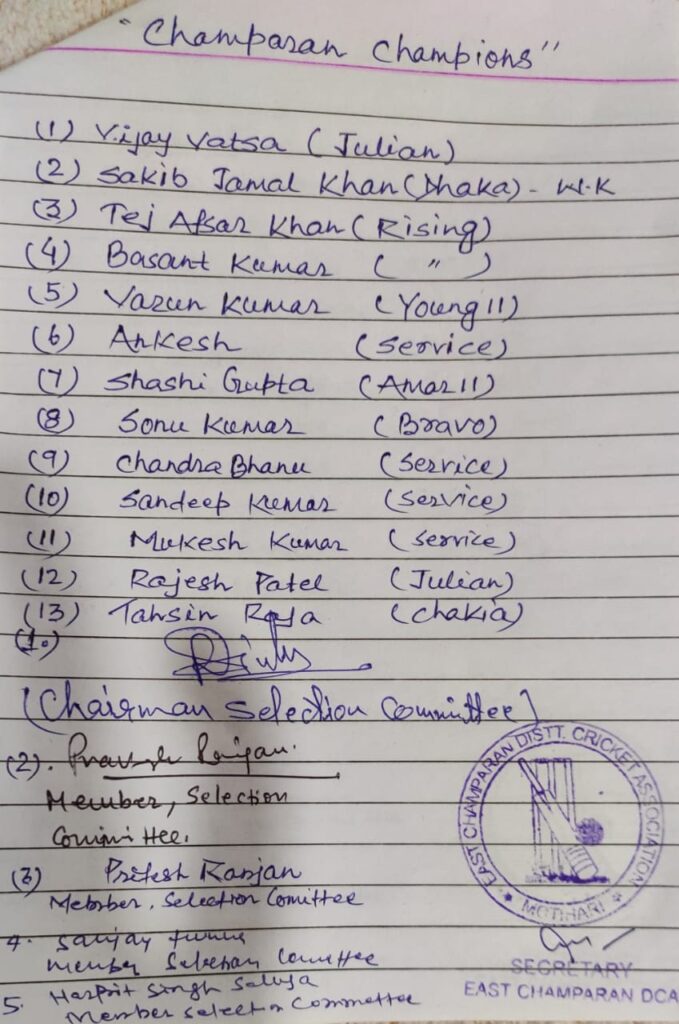 "Champaran Champions"
(1) Vijay Vatsa (Julian)
(2) Sakib Jamal Khan (Dhaka) - W.K
(3) Tej Afsar Khan (Rising)
(4) Basant Kumar ( " )
(5) Varun Kumar (Young 11)
(6) Ankesh (Service)
(7) Shashi Gupta (Amar 11)
(8) Sonu Kumar (Bravo)
(9) Chandra Bhanu (Service)
(10) Sandeep Kumar (Service)
(11) Mukesh Kumar (Service)
(12) Rajesh Patel (Julian)
(13) Tahsin Raja (Chakia)
(1.)
(Chairman Selection Committee)
(2). Ranjan.
Member, Selection
Committee.
(3) Pritesh Ranjan
Member, Selection Comittee
4. Sanjay
Member Selection Committee
5. Harprit Singh Saluja
Member Selection Committee
EAST CHAMPARAN DISTT. CRICKET ASSOCIATION
★ MOTIHARI ★
SECRETARY
EAST CHAMPARAN DCA